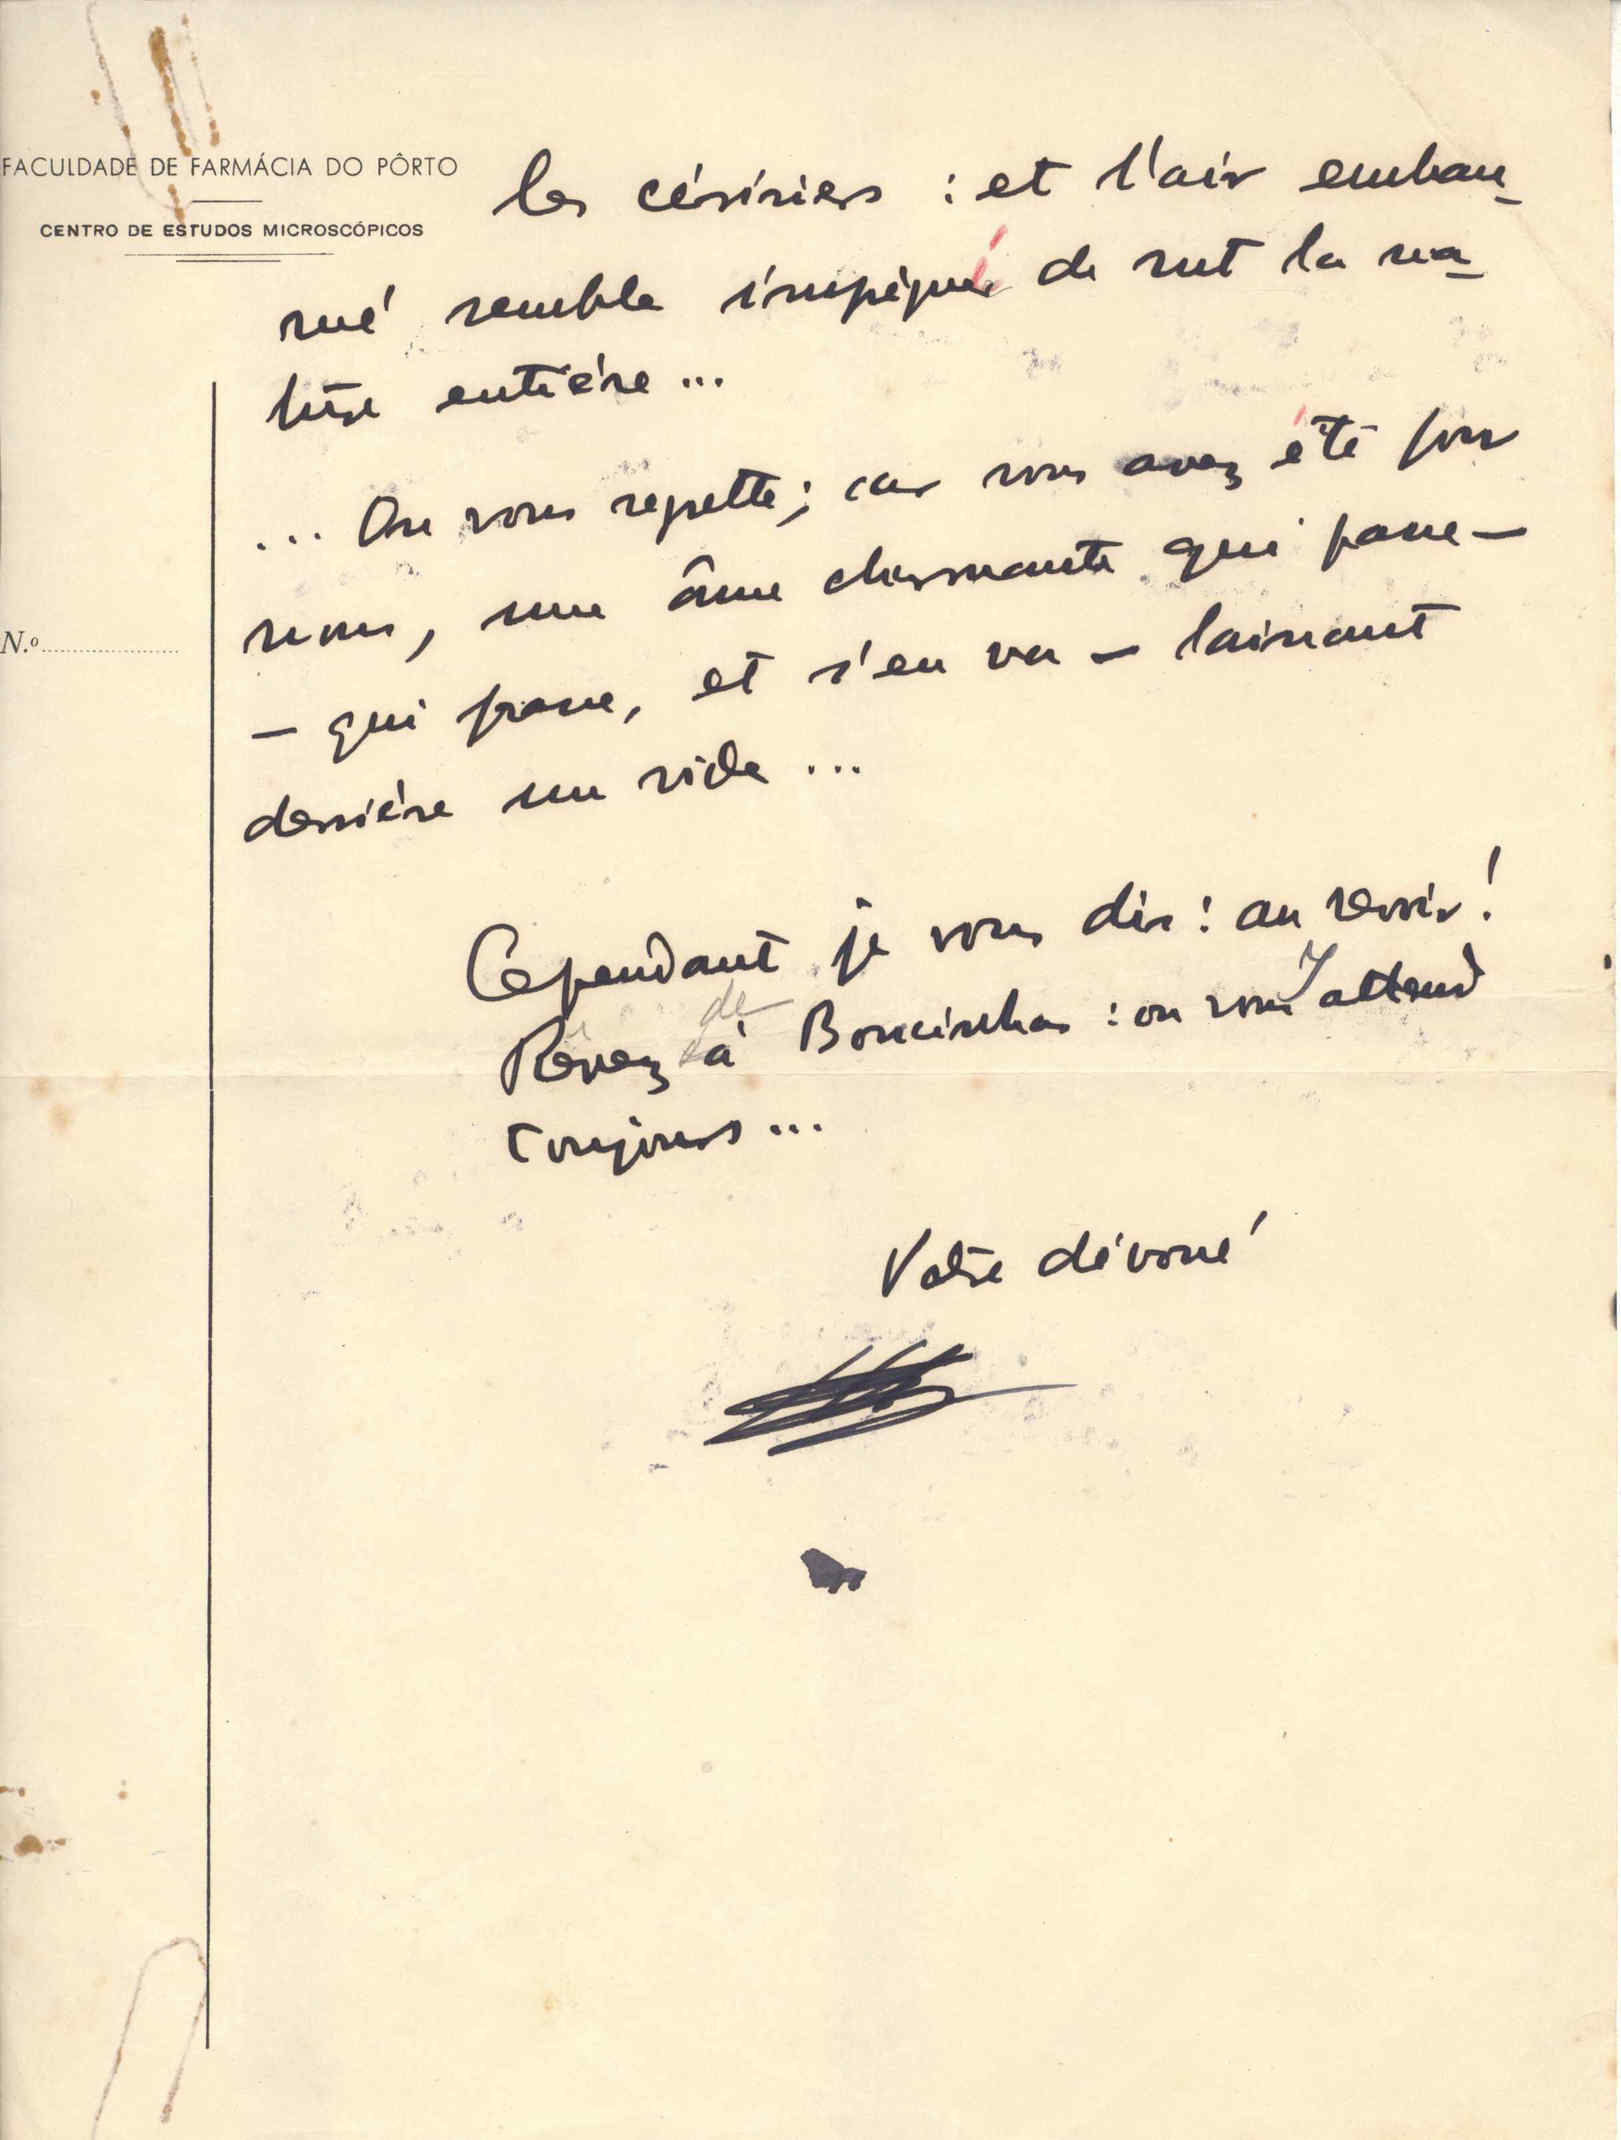 FACULDADE DE FARMÁCIA DO PÔRTO
CENTRO DE ESTUDOS MICROSCÓPICOS
N.º
les cérisiers : et l'air embau-
mé semble impégné de rut la na-
ture entière ...
... On vous regrette; car vous avez été pour
nous, une âme charmante qui passe —
— qui passe, et s'en va — laissant
derrière un vide ...
Cependant je vous dis : au revoir !
de
Rêvez à Boucinhas : on vous y attend
toujours ...
Votre dévoué